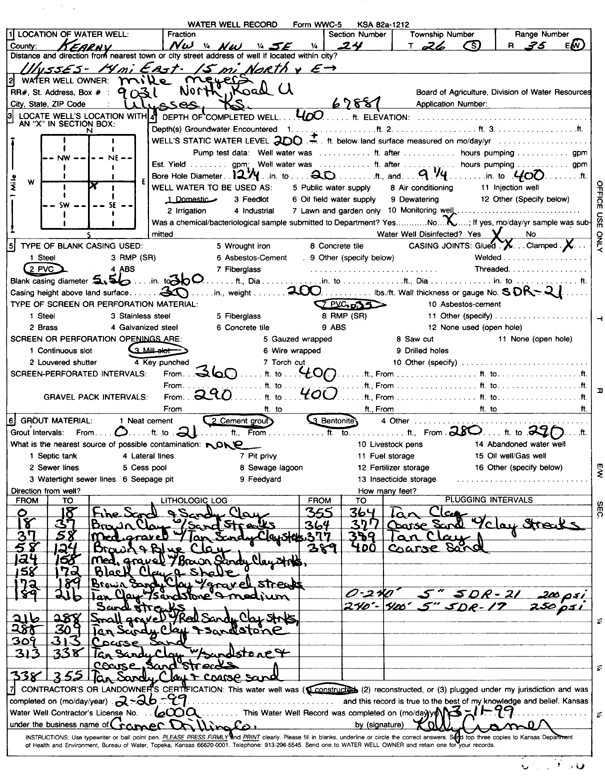 WATER WELL RECORD Form WWC-5 KSA 82a-1212
1 LOCATION OF WATER WELL: Fraction Section Number Township Number Range Number
County: Kearny NW ¼ NW ¼ SE ¼ 24 T 26 S R 35 E/W
Distance and direction from nearest town or city street address of well if located within city?
Ulysses- 14 mi East- 15 mi North & E→
2 WATER WELL OWNER: Mike Meyers
RR#, St. Address, Box # : 9031 North Road U Board of Agriculture, Division of Water Resources
City, State, ZIP Code : Ulysses, Ks. 67881 Application Number:
3 LOCATE WELL'S LOCATION WITH AN "X" IN SECTION BOX:
N
NW NE
W X E
SW SE
S
1 Mile
4 DEPTH OF COMPLETED WELL 400 ft. ELEVATION:
Depth(s) Groundwater Encountered 1. ft. 2. ft. 3. ft.
WELL'S STATIC WATER LEVEL 200 ± ft. below land surface measured on mo/day/yr
Pump test data: Well water was ft. after hours pumping gpm
Est. Yield gpm: Well water was ft. after hours pumping gpm
Bore Hole Diameter 12¼ in. to 20 ft., and 9¼ in. to 400 ft.
WELL WATER TO BE USED AS: 5 Public water supply 8 Air conditioning 11 Injection well
1 Domestic 3 Feedlot 6 Oil field water supply 9 Dewatering 12 Other (Specify below)
2 Irrigation 4 Industrial 7 Lawn and garden only 10 Monitoring well
Was a chemical/bacteriological sample submitted to Department? Yes No X ; If yes, mo/day/yr sample was submitted Water Well Disinfected? Yes X No
5 TYPE OF BLANK CASING USED: 5 Wrought iron 8 Concrete tile CASING JOINTS: Glued X Clamped X
1 Steel 3 RMP (SR) 6 Asbestos-Cement 9 Other (specify below) Welded
2 PVC 4 ABS 7 Fiberglass Threaded.
Blank casing diameter 5.56 in. to 360 ft., Dia in. to ft., Dia in. to ft.
Casing height above land surface 30 in., weight 200 lbs./ft. Wall thickness or gauge No. SDR-21
TYPE OF SCREEN OR PERFORATION MATERIAL: 7 PVC .035 10 Asbestos-cement
1 Steel 3 Stainless steel 5 Fiberglass 8 RMP (SR) 11 Other (specify)
2 Brass 4 Galvanized steel 6 Concrete tile 9 ABS 12 None used (open hole)
SCREEN OR PERFORATION OPENINGS ARE: 5 Gauzed wrapped 8 Saw cut 11 None (open hole)
1 Continuous slot 3 Mill slot 6 Wire wrapped 9 Drilled holes
2 Louvered shutter 4 Key punched 7 Torch cut 10 Other (specify)
SCREEN-PERFORATED INTERVALS: From 360 ft. to 400 ft., From ft. to ft.
From ft. to ft., From ft. to ft.
GRAVEL PACK INTERVALS: From 290 ft. to 400 ft., From ft. to ft.
From ft. to ft., From ft. to ft.
6 GROUT MATERIAL: 1 Neat cement 2 Cement grout 3 Bentonite 4 Other
Grout Intervals: From 0 ft. to 21 ft., From ft. to ft., From 280 ft. to 290 ft.
What is the nearest source of possible contamination: none 10 Livestock pens 14 Abandoned water well
1 Septic tank 4 Lateral lines 7 Pit privy 11 Fuel storage 15 Oil well/Gas well
2 Sewer lines 5 Cess pool 8 Sewage lagoon 12 Fertilizer storage 16 Other (specify below)
3 Watertight sewer lines 6 Seepage pit 9 Feedyard 13 Insecticide storage
Direction from well? How many feet?
FROM TO LITHOLOGIC LOG FROM TO PLUGGING INTERVALS
0 18 Fine Sand & Sandy Clay 355 364 Tan Clay
18 37 Brown Clay w/Sand Streaks 364 377 Coarse Sand w/Clay Streaks
37 58 Med. gravel w/Tan Sandy Clay Stks. 377 389 Tan Clay
58 124 Brown & Blue Clay 389 400 Coarse Sand
124 158 Med. gravel w/Brown Sandy Clay Strks.
158 172 Black Clay & Shale
172 189 Brown Sandy Clay w/gravel streaks
189 216 Tan Clay w/Sandstone & medium 0-240' 5" SDR-21 200 psi
Sand Streaks 240'-400' 5" SDR-17 250 psi
216 288 Small gravel w/Red Sandy Clay Strks.
288 309 Tan Sandy Clay & sandstone
309 313 Coarse Sand
313 338 Tan Sandy Clay w/Sandstone &
coarse Sand streaks
338 355 Tan Sandy Clay & coarse sand
7 CONTRACTOR'S OR LANDOWNER'S CERTIFICATION: This water well was (1) constructed, (2) reconstructed, or (3) plugged under my jurisdiction and was
completed on (mo/day/year) 2-26-99 and this record is true to the best of my knowledge and belief. Kansas
Water Well Contractor's License No. 6000 This Water Well Record was completed on (mo/day/yr) 3-11-99
under the business name of Cramer Drilling Co. by (signature) Kelly Cramer
INSTRUCTIONS: Use typewriter or ball point pen. PLEASE PRESS FIRMLY and PRINT clearly. Please fill in blanks, underline or circle the correct answers. Send top three copies to Kansas Department
of Health and Environment, Bureau of Water, Topeka, Kansas 66620-0001. Telephone: 913-296-5545. Send one to WATER WELL OWNER and retain one for your records.
OFFICE USE ONLY
T
R
E/W
SEC.
¼
¼
¼